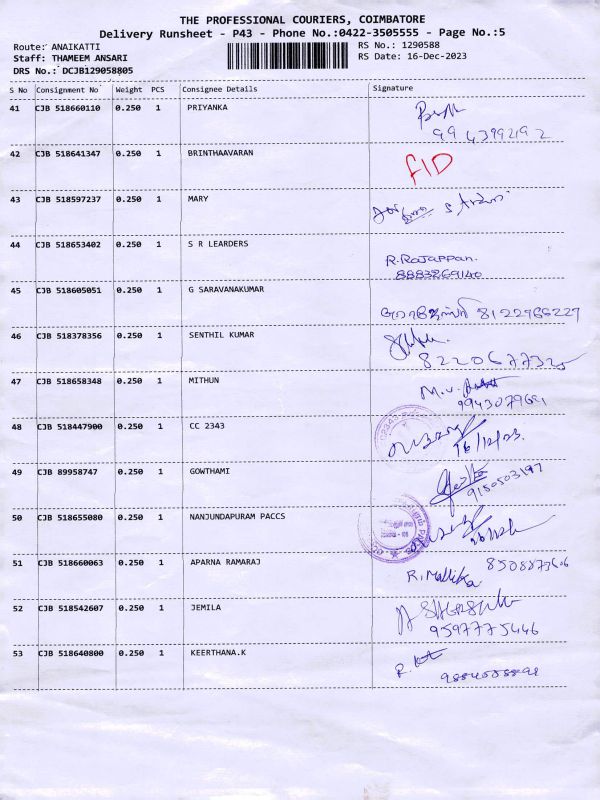 THE PROFESSIONAL COURIERS, COIMBATORE
Delivery Runsheet - P43 - Phone No.:0422-3505555 - Page No.:5
Route: ANAIKATTI
RS No.: 1290588
Staff: THAMEEM ANSARI
RS Date: 16-Dec-2023
DRS No.: DCJB129058805
S No Consignment No Weight PCS Consignee Details Signature
41 CJB 518660110 0.250 1 PRIYANKA
42 CJB 518641347 0.250 1 BRINTHAAVARAN FID
43 CJB 518597237 0.250 1 MARY
44 CJB 518653402 0.250 1 S R LEARDERS R.Rajappan.
8883269140
45 CJB 518605051 0.250 1 G SARAVANAKUMAR 8122966227
46 CJB 518378356 0.250 1 SENTHIL KUMAR
8220677325
47 CJB 518658348 0.250 1 MITHUN M.V.
48 CJB 518447900 0.250 1 CC 2343
16/12/23
49 CJB 89958747 0.250 1 GOWTHAMI
9150503197
50 CJB 518655080 0.250 1 NANJUNDAPURAM PACCS
51 CJB 518660063 0.250 1 APARNA RAMARAJ
R.Mallika
52 CJB 518542607 0.250 1 JEMILA
9597775446
53 CJB 518640800 0.250 1 KEERTHANA.K